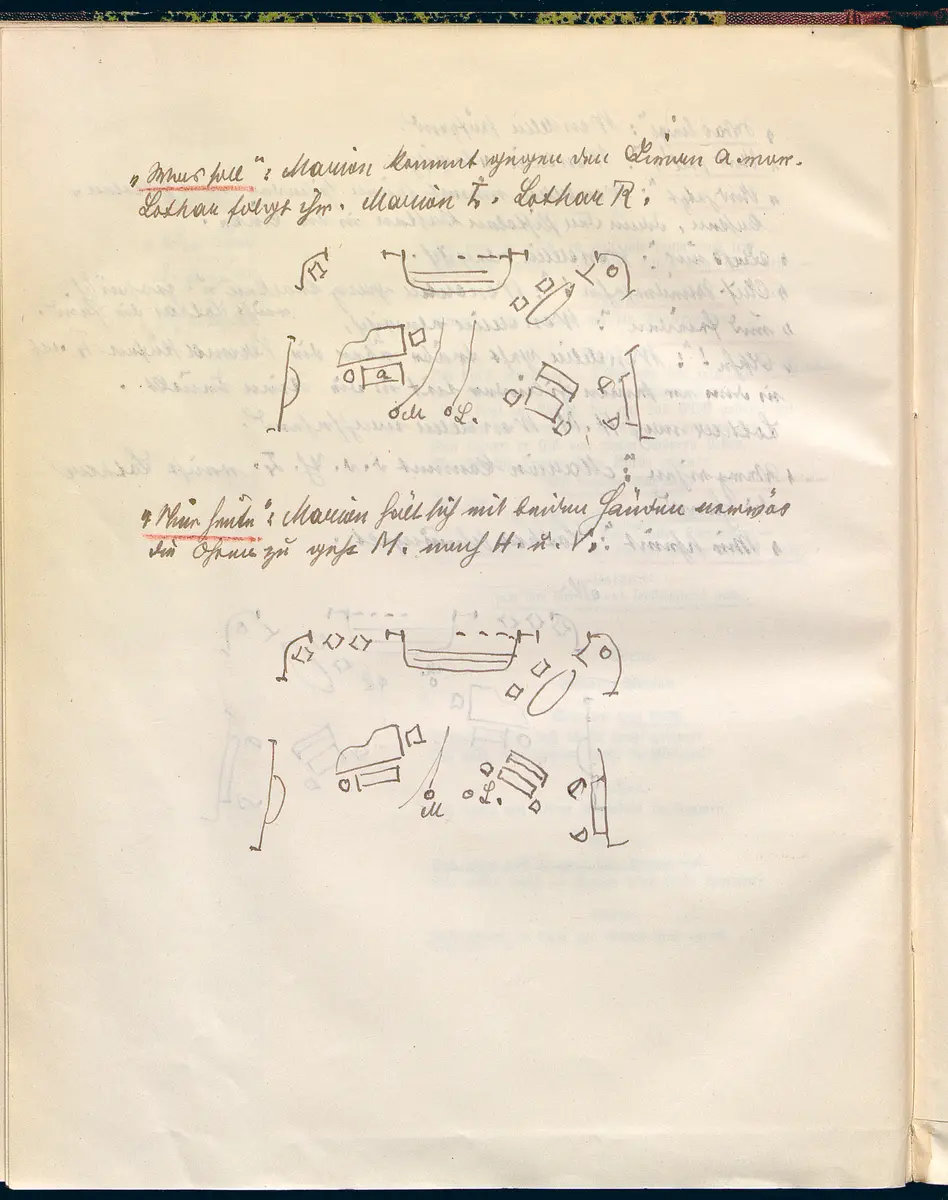 „Was soll": Marion kommt gegen den Diwan a vor.
Lothar folgt ihr. Marion L. Lothar R.
a
M
L.
„Nur heute": Marion hält sich mit beiden Händen nervös
die Ohren zu geht M. nach H. u. V.
M
L.